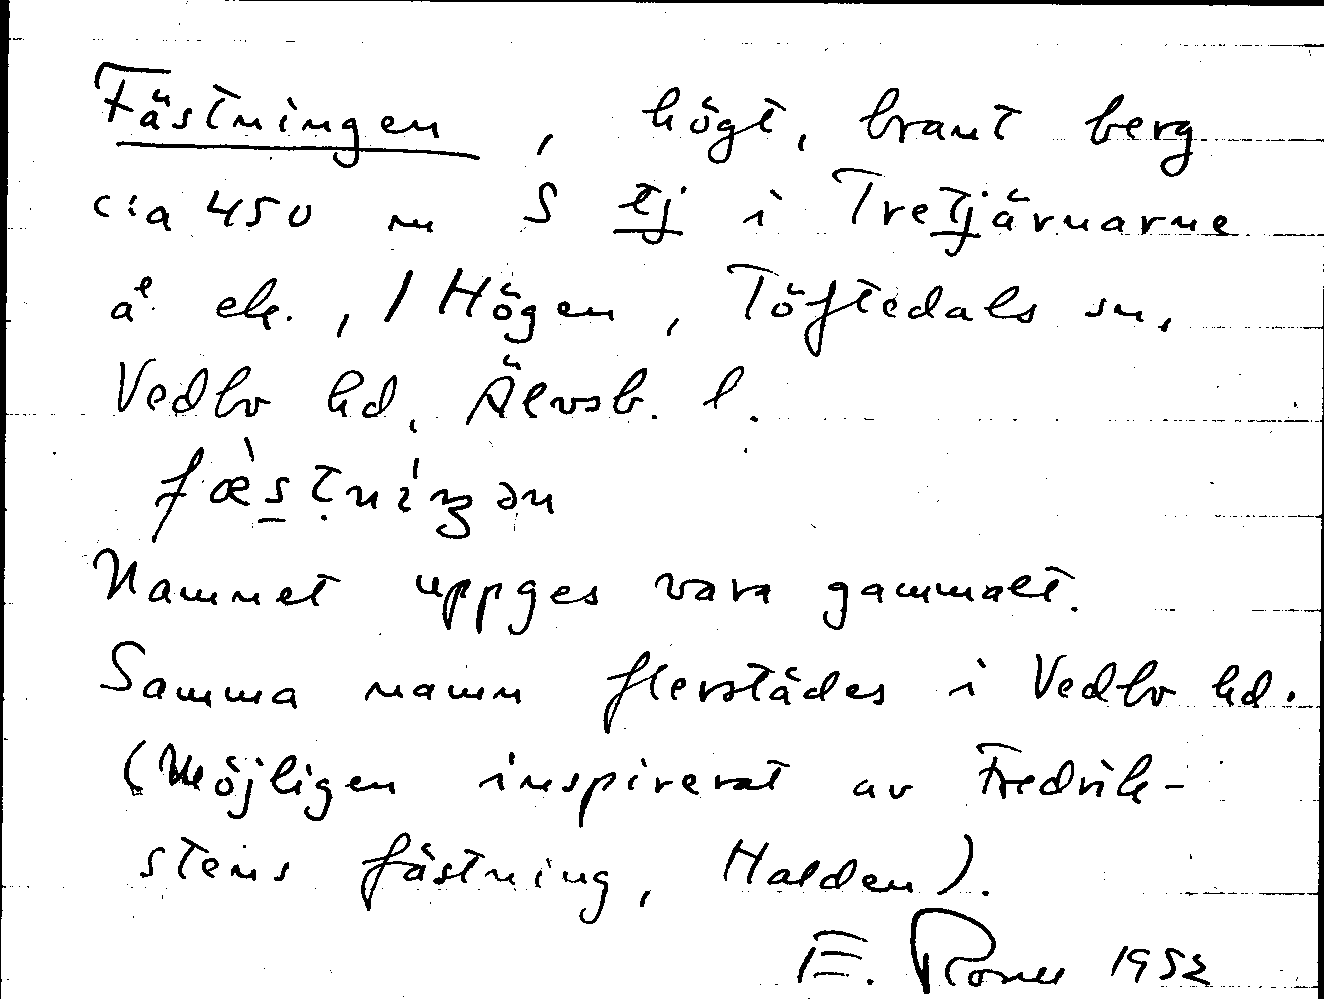 Fästningen, högt, brant berg
cia 450 m S tj i Tretjärnarne
å ek., / Högen, Töftedals sn,
Vedbo hd, Älvsb. l.
fæ̀stníŋən
Namnet uppges vara gammalt.
Samma namn flerstädes i Vedbo hd.
(Möjligen inspirerat av Fredrik-
stens fästning, Halden).
E. 1952